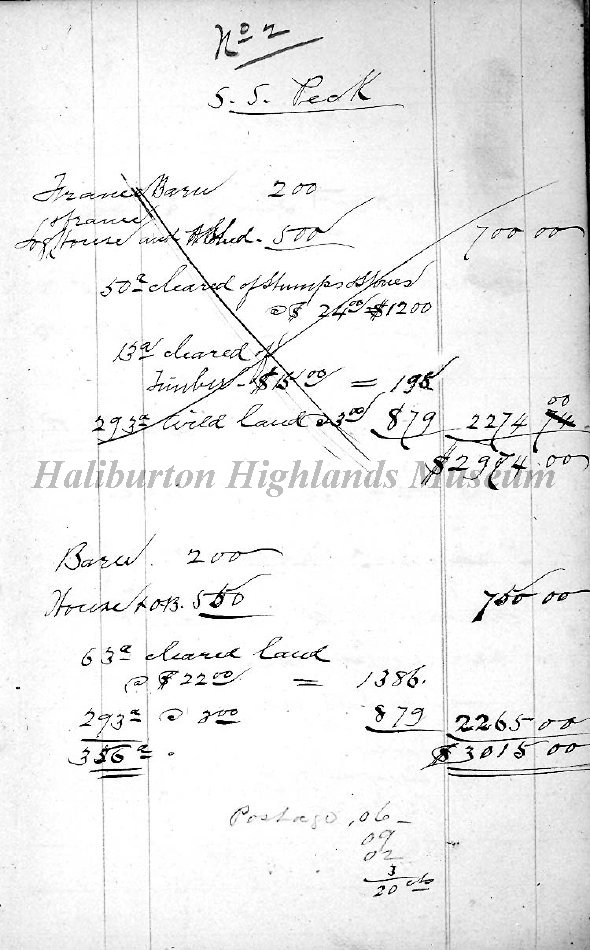 No 2
S. S. Peck
Frame Barn 200
& frame
Log House and Shed. 500 700 00
50a cleared of Stumps & Stones
@ $ 24 00 = $1200
13a cleared of
Timber - $15 00 = 195
293a Wild land @ 3 00 879 2274 00
$2974.00
Haliburton Highlands Museum
Barn 200
House & OB. 550 750 00
63a cleared land
@ $22 00 = 1386.
293a @ 3 00 879 2265 00
356a. $3015 00
Postage .06
09
02
3
20 cts